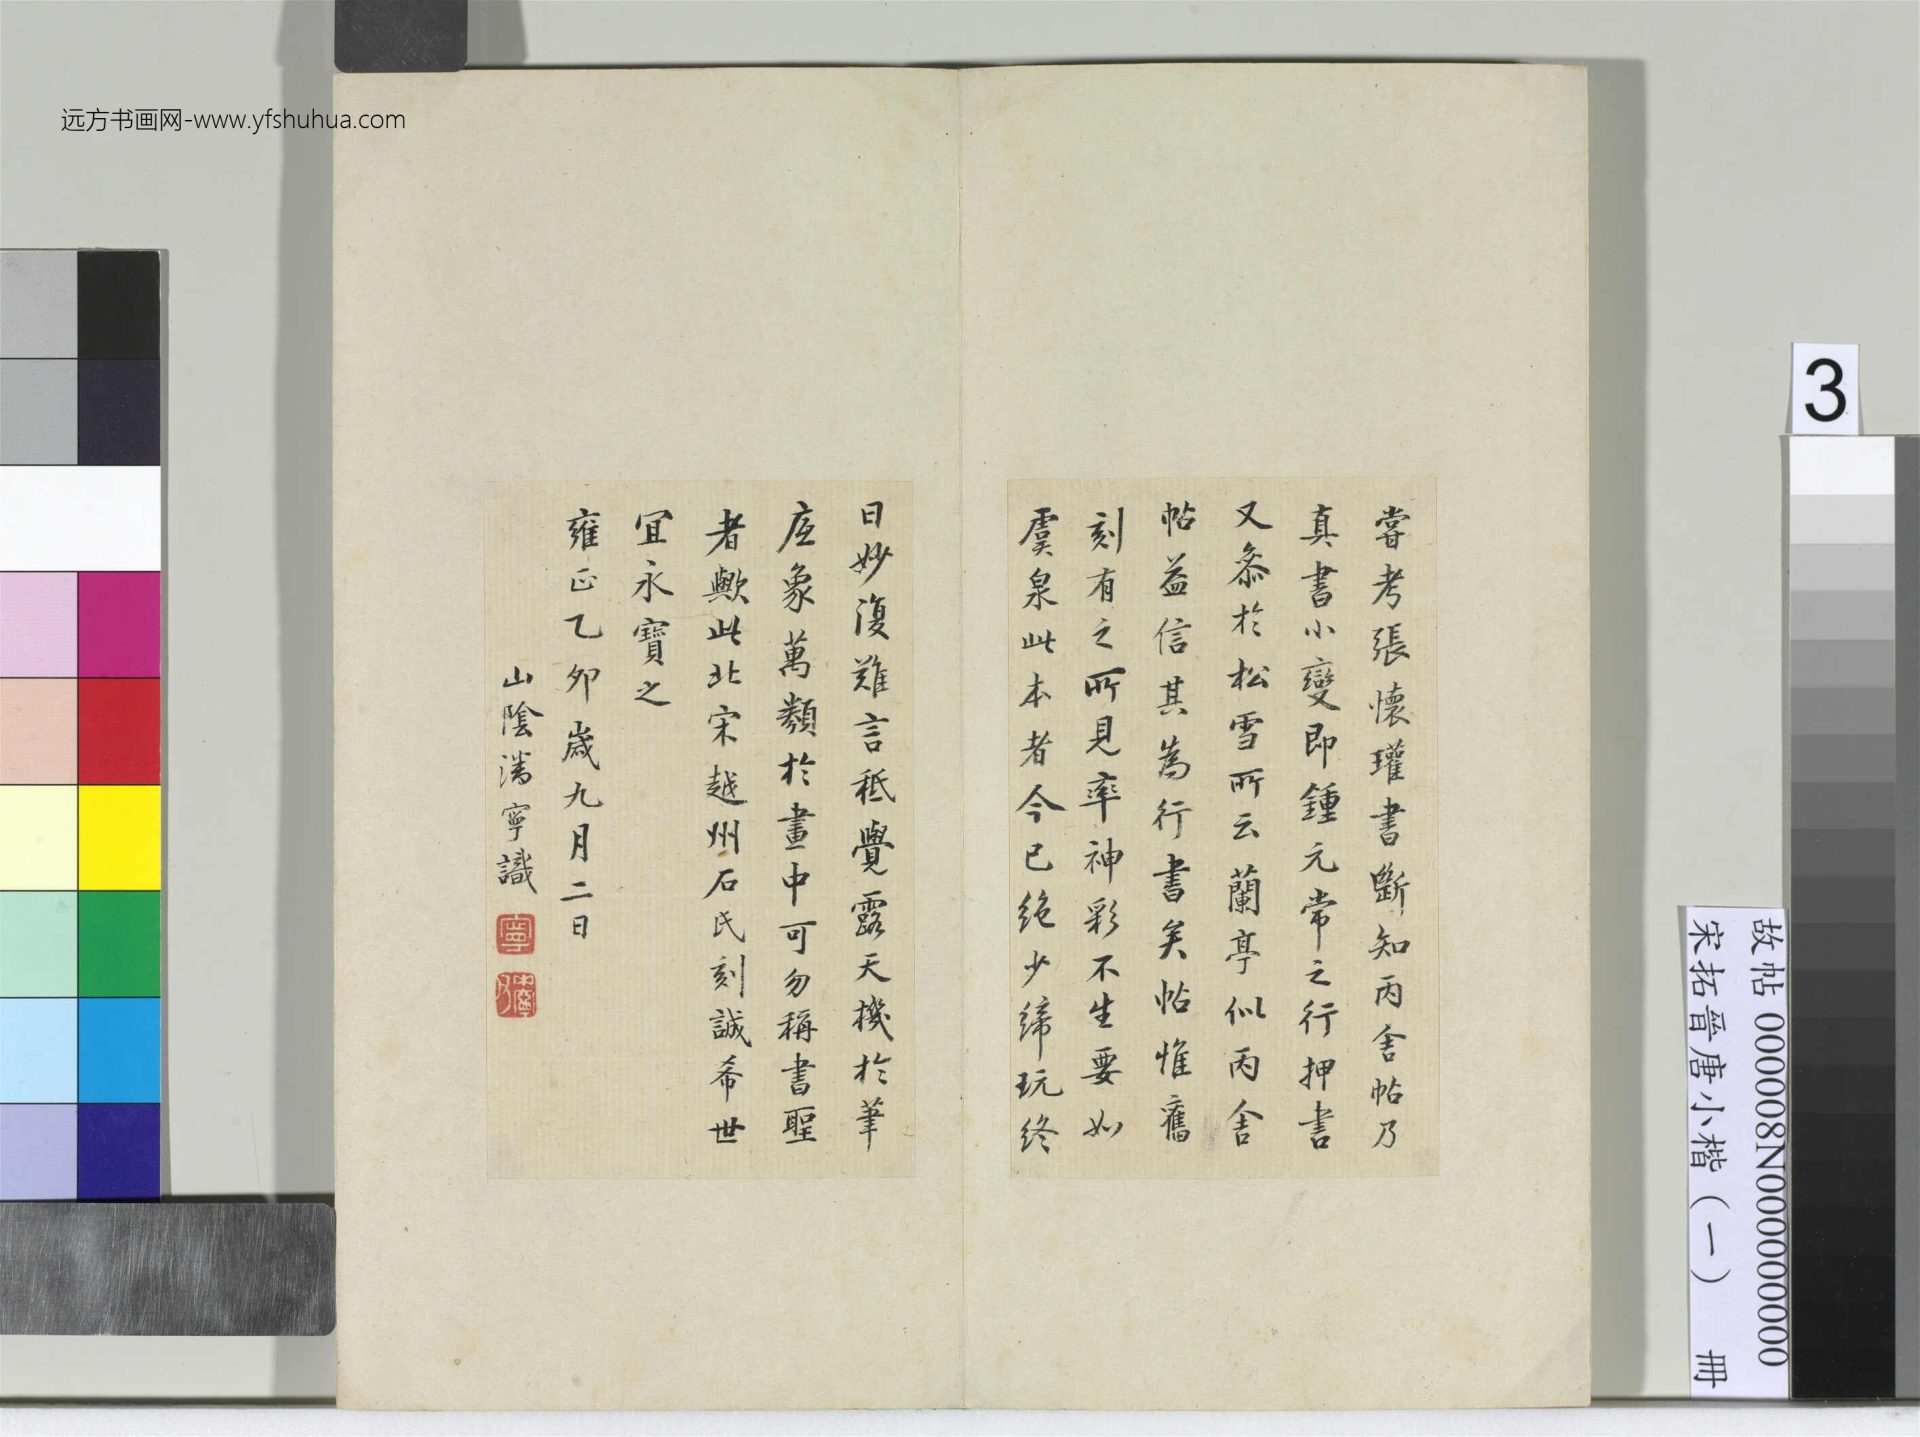 远方书画网-www.yfshuhua.com
嘗考張懷瓘書斷知丙舍帖乃
真書小變即鍾元常之行押書
又叅於松雪所云蘭亭似丙舍
帖益信其為行書矣帖惟舊
刻有之所見率神彩不生要如
虞泉此本者今已绝少締玩终
日妙復難言秪覺露天機於筆
底象萬類於畫中可勿稱書聖
者歟此北宋越州石氏刻誠希世
冝永寶之
雍正乙卯歲九月二日
山陰潘寧識
寧
3
故帖 000008N000000000
宋拓晋唐小楷(一) 冊